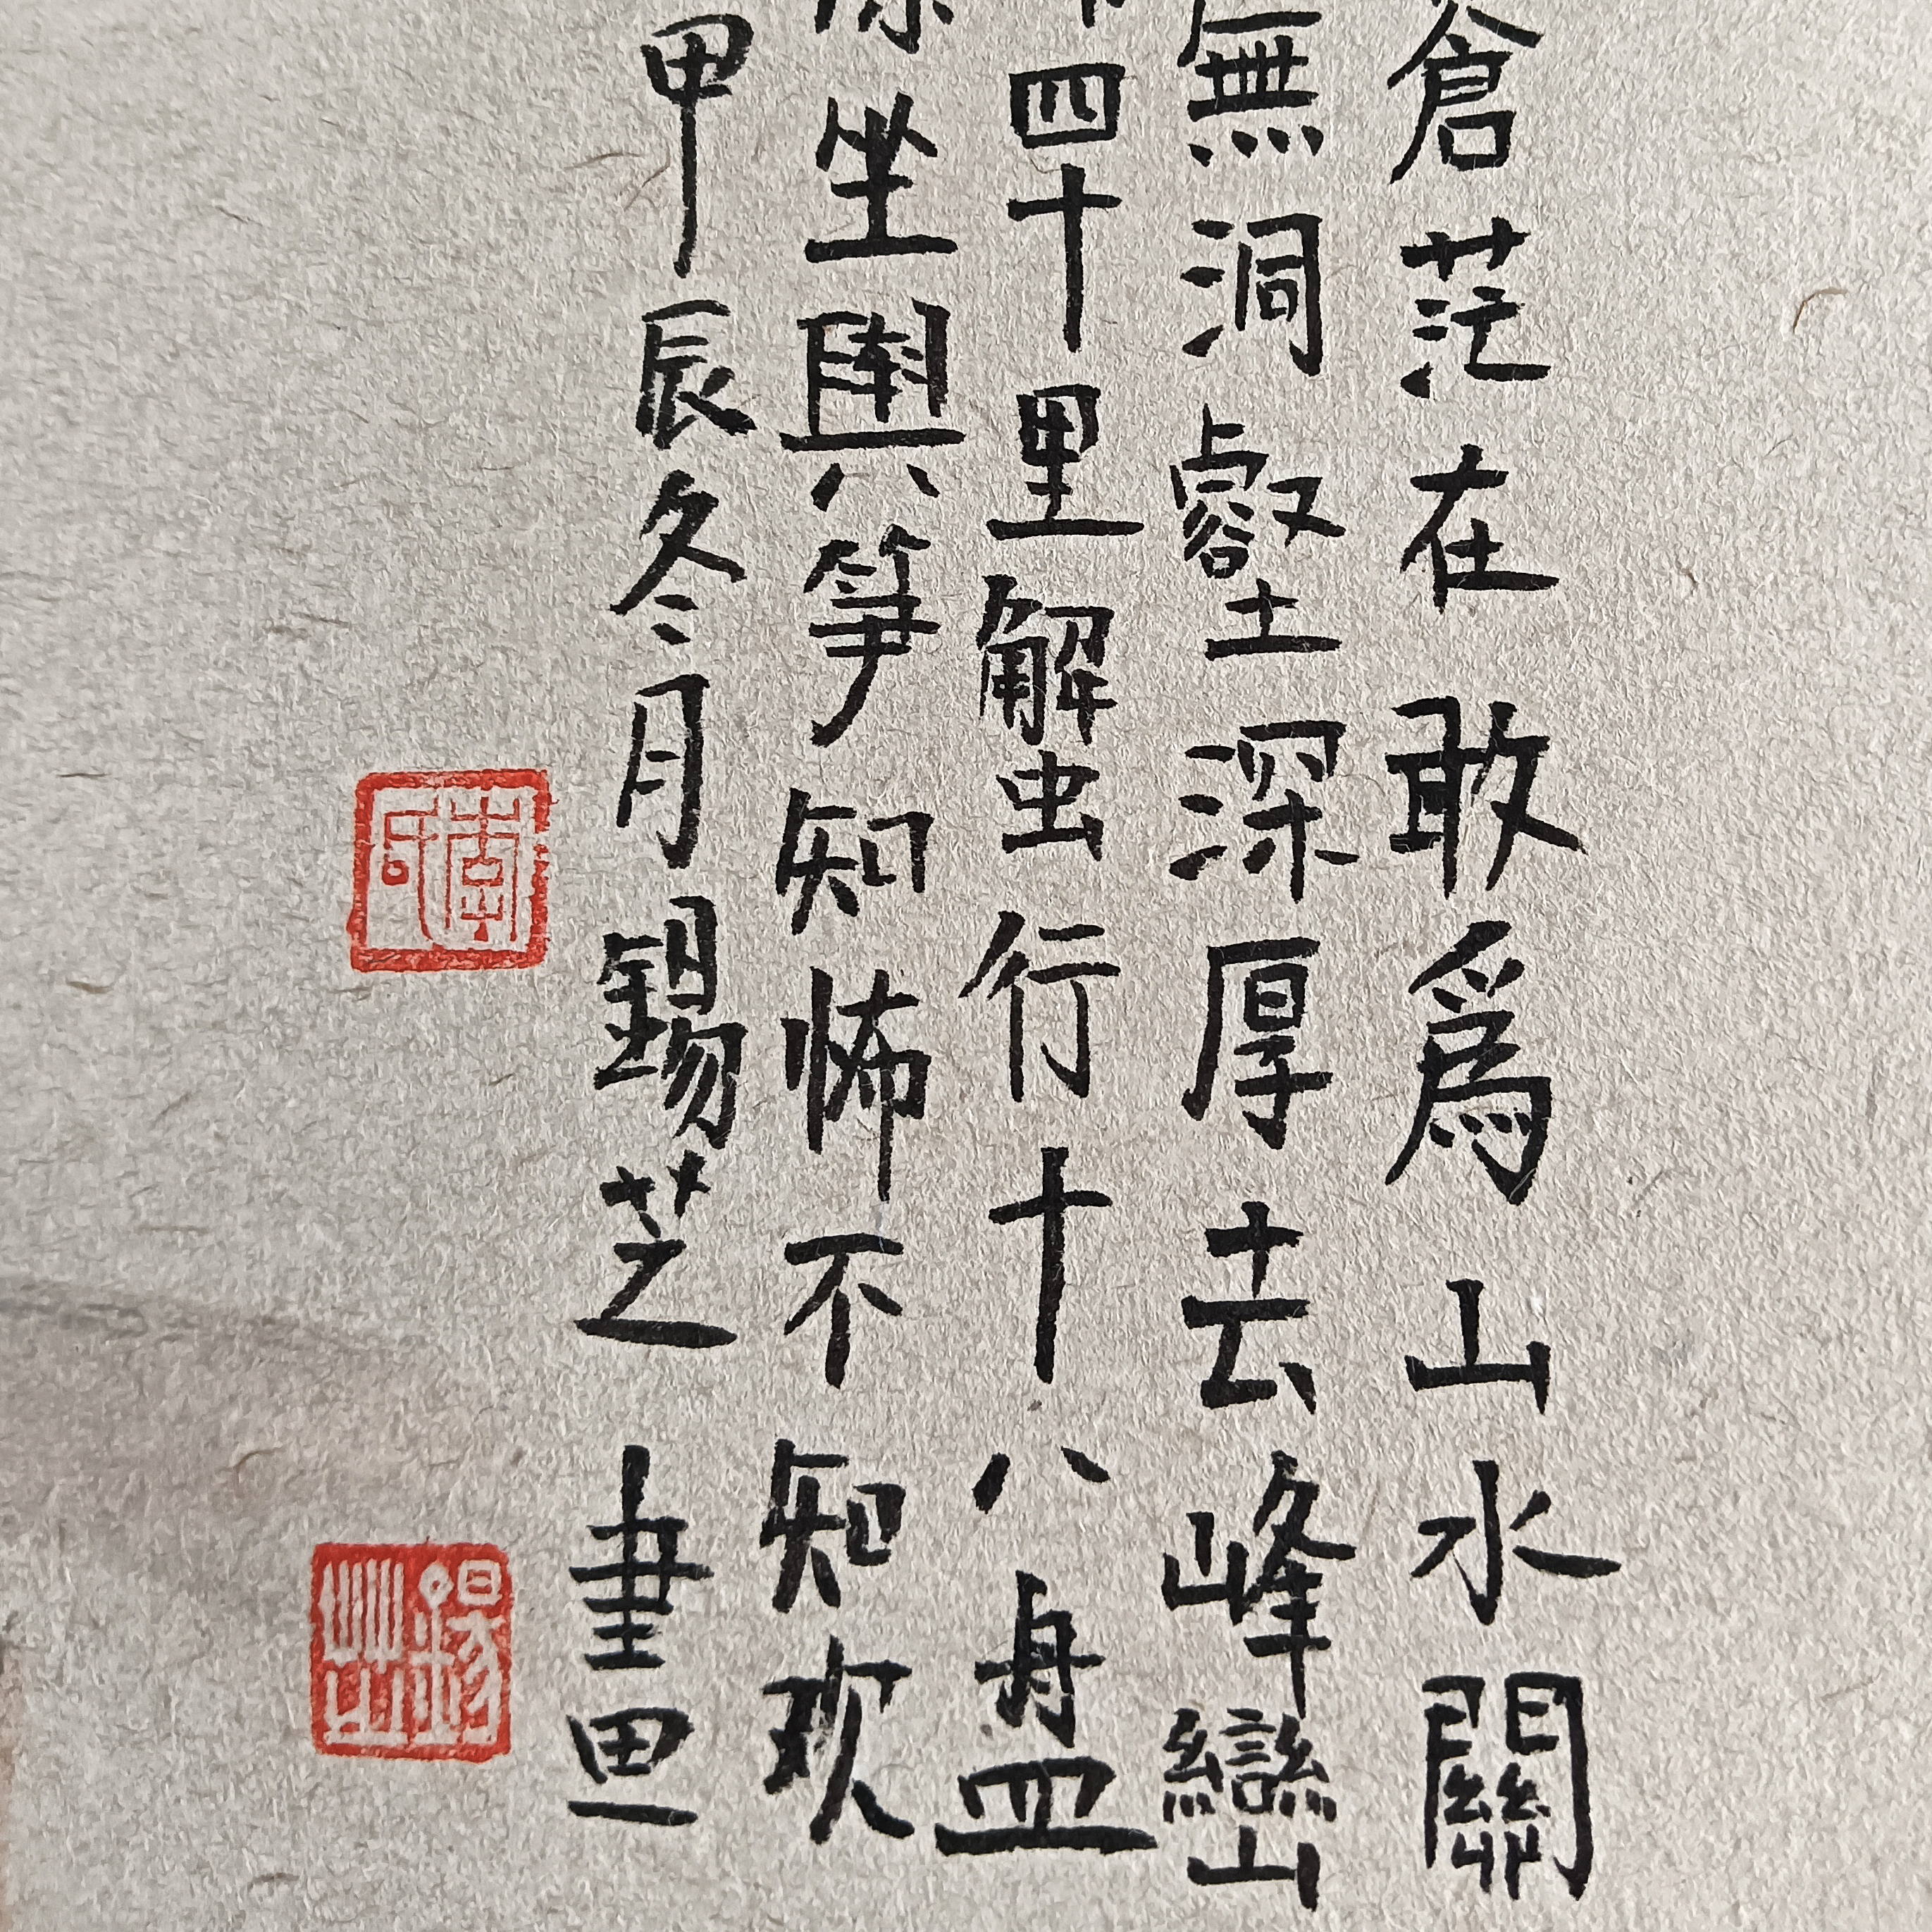 蒼茫在敢爲山水關
無洞壑深厚去峰巒
四十里蟹行十八盤
坐輿箏知怖不知欢
甲辰冬月錫芝畫